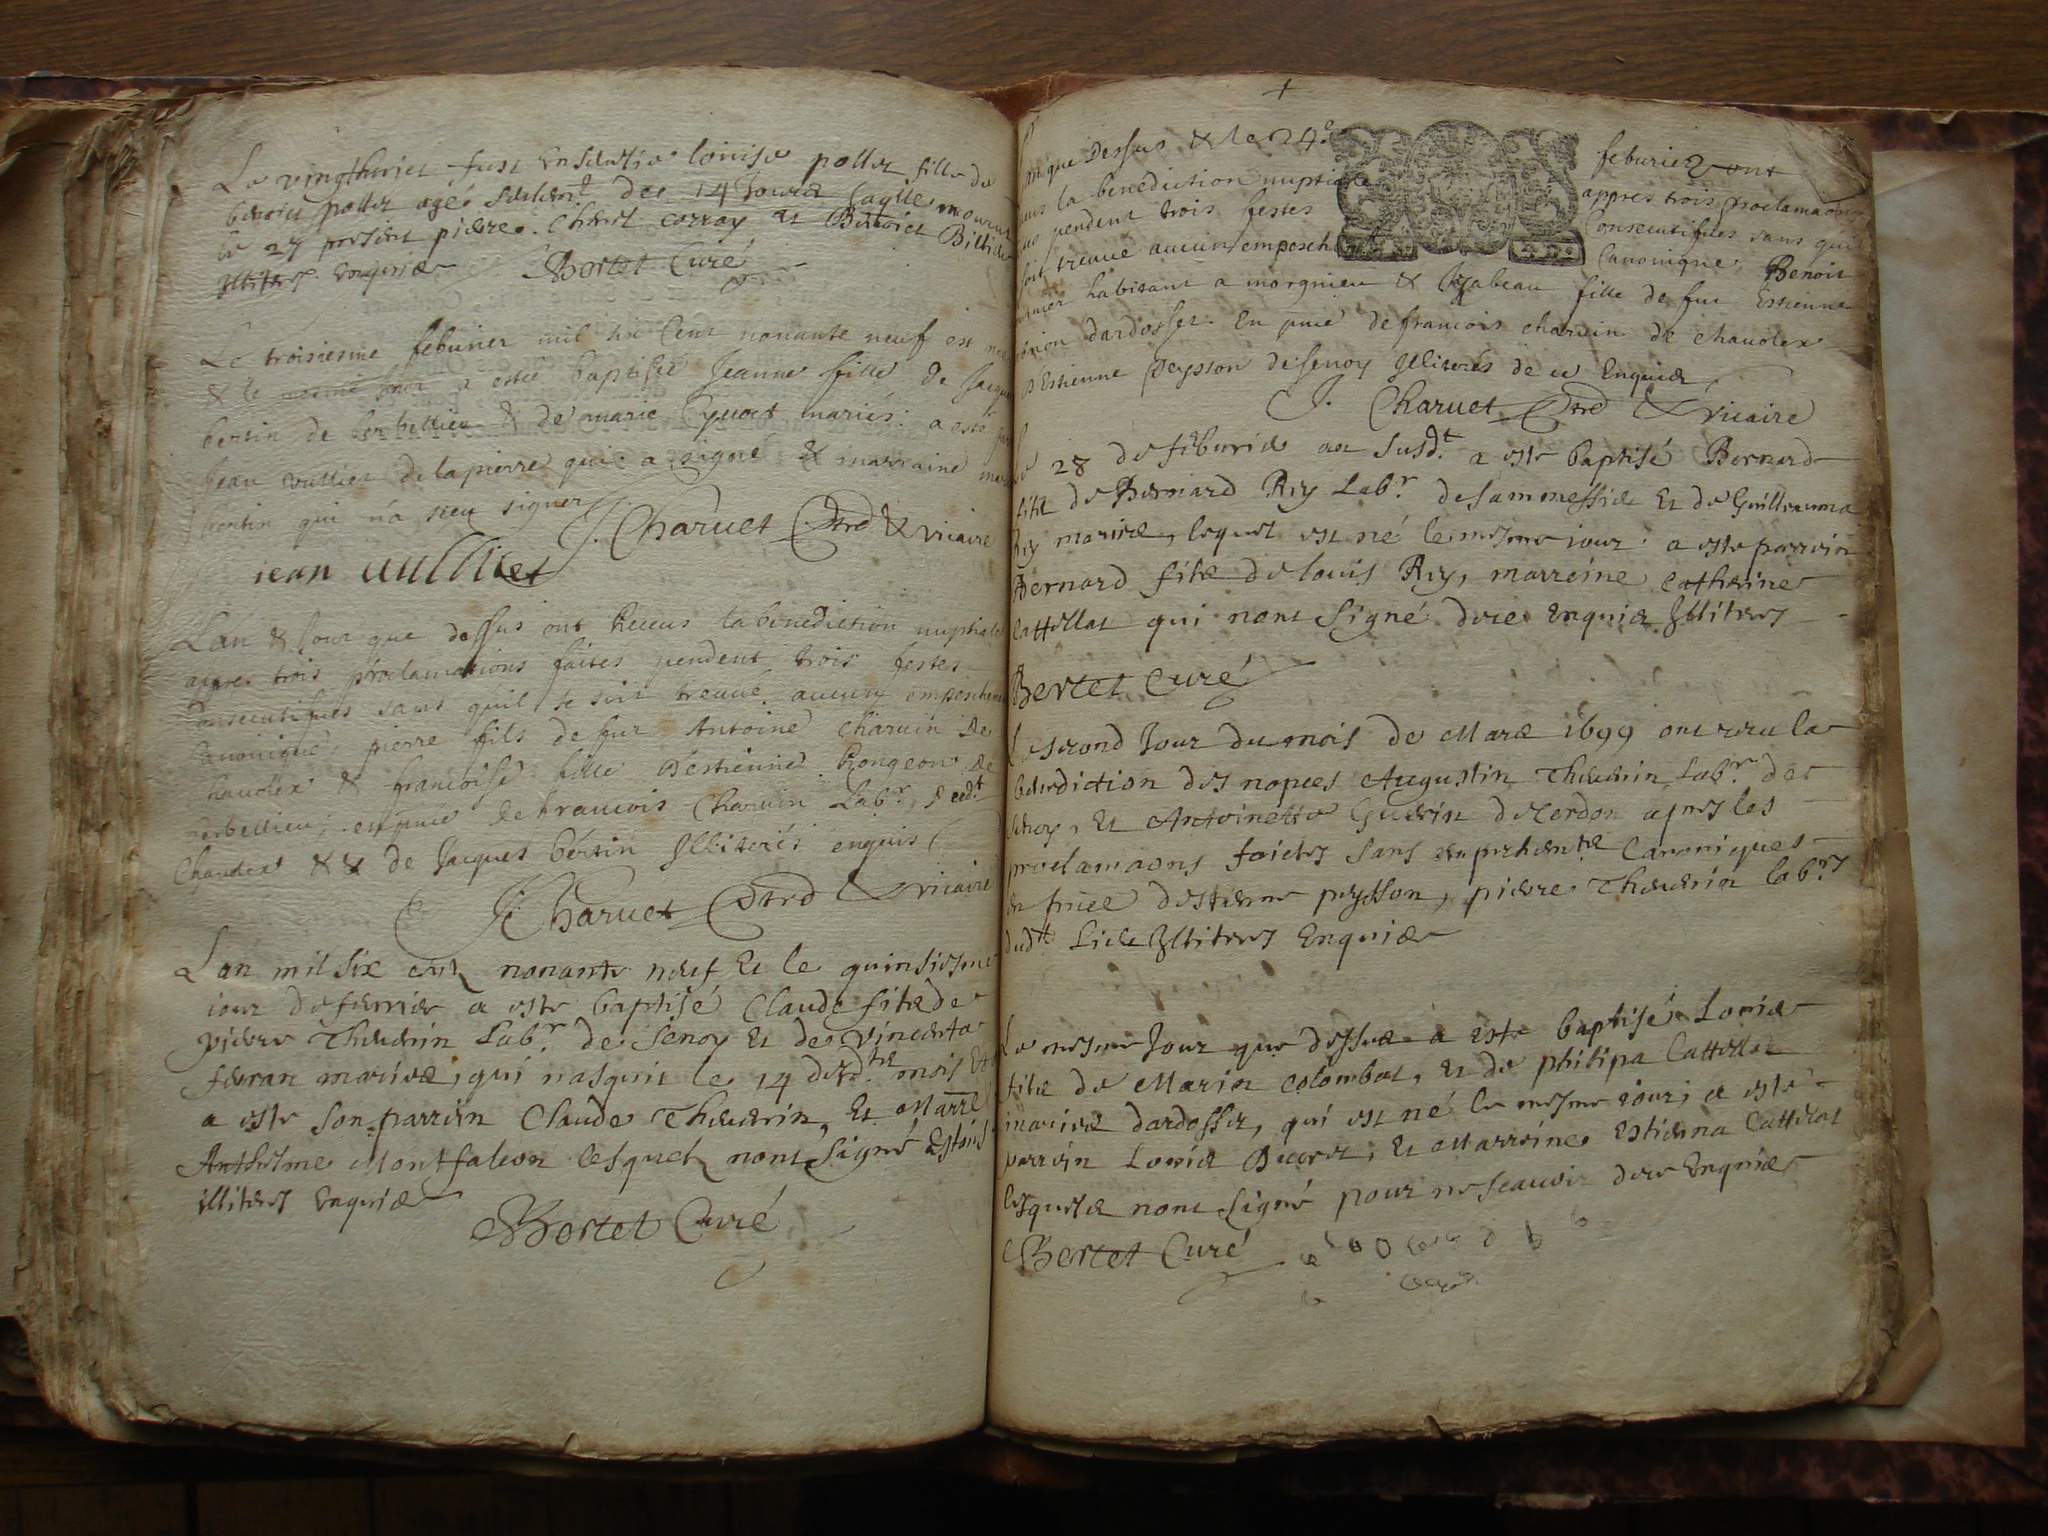 Le vingthuict fust Ensevelie louise pollet fille de
benoict pollet agée seulemt. des 14 Jours laqlle mourut
le 27 present pierre. Christ corray et Benoict Billiet
Illiters Enquis Bertet Curé
Le troisiesme febvrier mil six Cent nonante neuf est née
& le mesme Jour a esté baptisée Jeanne fille de Jacque
bertin de & de marie Cyuoct mariés. a esté
Jean vulliet de lapierre qui a signé & marraine
bertin qui n'a sceu signer J. Charuet Ptre & vicaire
iean vulliet
Lan & Jour que dessus ont Receus la benediction nuptiale
apres trois proclamations faites pendent trois festes
Consecutifves sans quil se soit treuvé aucun empeschem
Canonique, pierre fils de fur Antoine charvin de
chaudex & francoise fille Destienne Rongeon de
enpnce de francois Charvin Labr. dudt
Chandex & de Jacques bertin Illiterés enquis
J. Charuet Ptre & vicaire
Lan mil six cent nonante neuf et le quinsiesme
iour de febvrier a este baptisé Claude fils de
pierre Theverin Labr. de Senoy et de Vincenta
fevran mariés, qui nasquit le 14 desdts mois et
a este son parrein Claude Theverin, Et Marre
Anthelme Montfalcon lesquelz nont Signé Estans
illiters Enquis
Bertet Curé
Lan que Dessus & le 24e febvrier ont
la benediction nuptiale appres trois proclamaons
pendent trois festes Consecutifves sans quil
soit treuvé aucun empeschem Canonique, Benoit
habitant a morgnieu & Ysabeau fille de fur Estienne
dardosset. En pnce de francois charvin de chaudex
& Estienne Peysson de Senoy Illiterés de ce Enquis
J. Charuet Ptre & vicaire
Le 28 de feburier an susdt. a este baptisé Bernard
filz de Bernard Rey Labr. de sammessiex et de Guilleauma
Rey mariés, lequel est né le mesme iour. a este parrein
Bernard filz de louis Rey, marreine Catherine
Cattellat qui nont signé dece enquis Illiters
Bertet Curé
Le second Jour du mois de Mars 1699 ont receu la
benediction des nopces Augustin Theverin Labr. de
senoy, Et Antoinette Guerin de Cerdon apres les
proclamaons faictes sans empeschemts Canoniques
En pnce destienne peysson, pierre Theverin labrs
dudt Lieu Illiters Enquis
Le mesme Jour que dessus a este baptisé Louis
filz de Marin colombat, et de philipa Cattellat
mariés dardosset, qui est né le mesme iour, a este
parrein Louis, Et Marreine Estienna Cattelat
lesquels nont Signé pour ne scauoir dece Enquis
Bertet Curé